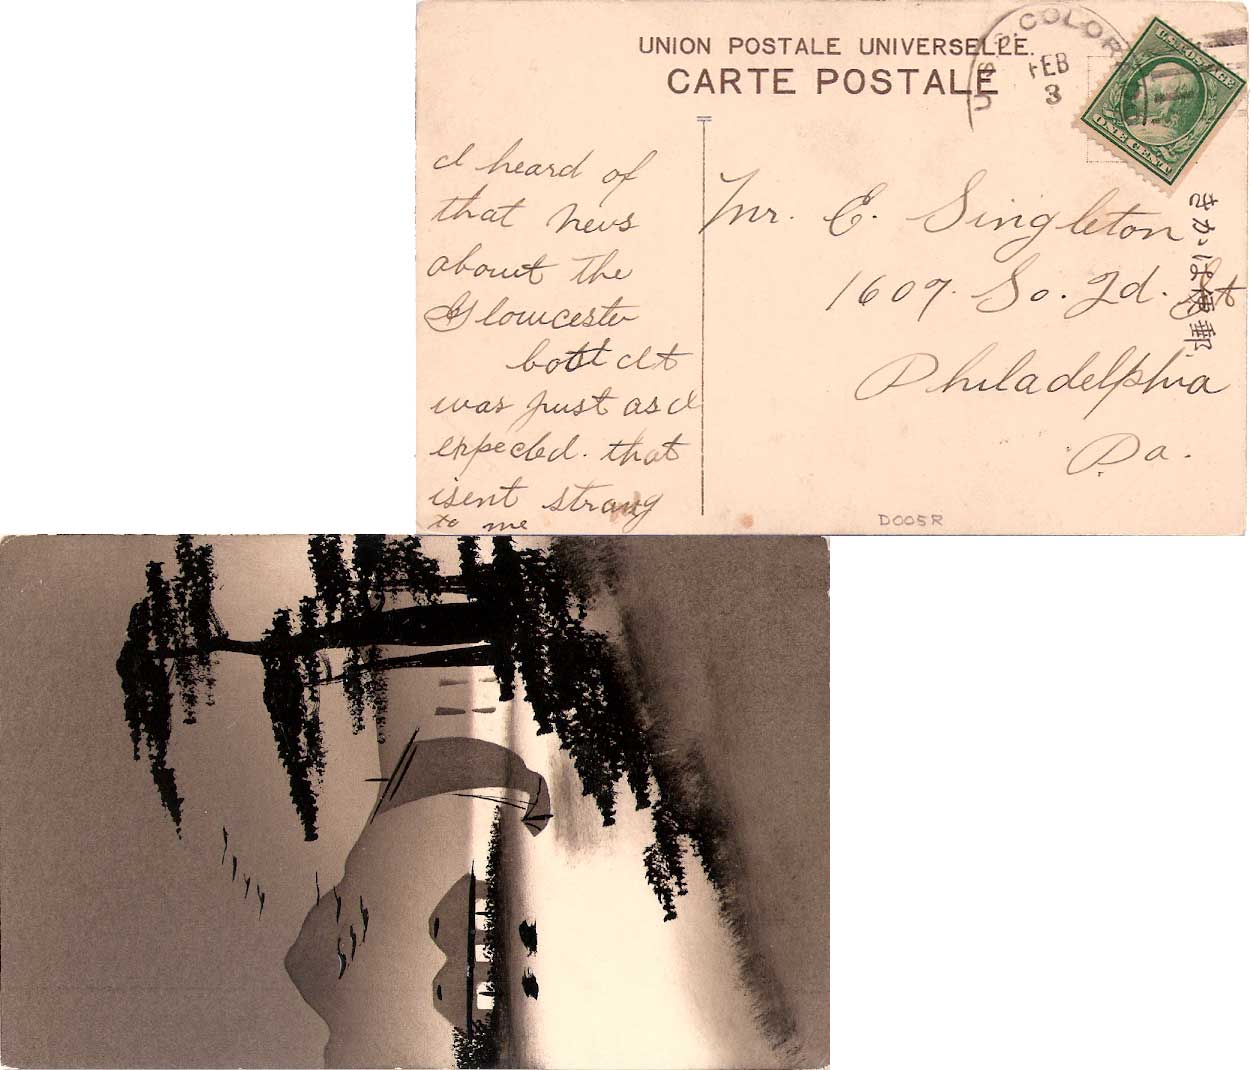 UNION POSTALE UNIVERSELLE.
CARTE POSTALE
U.S.S. COLOR
FEB
3
U.S. POSTAGE
ONE CENT
きかは便郵
I heard of
that news
about the
Gloucester
boat It
was just as I
expected. that
isent strang
to me
Mr. E. Singleton
1609. So. 2d. St
Philadelphia
Pa.
D005R